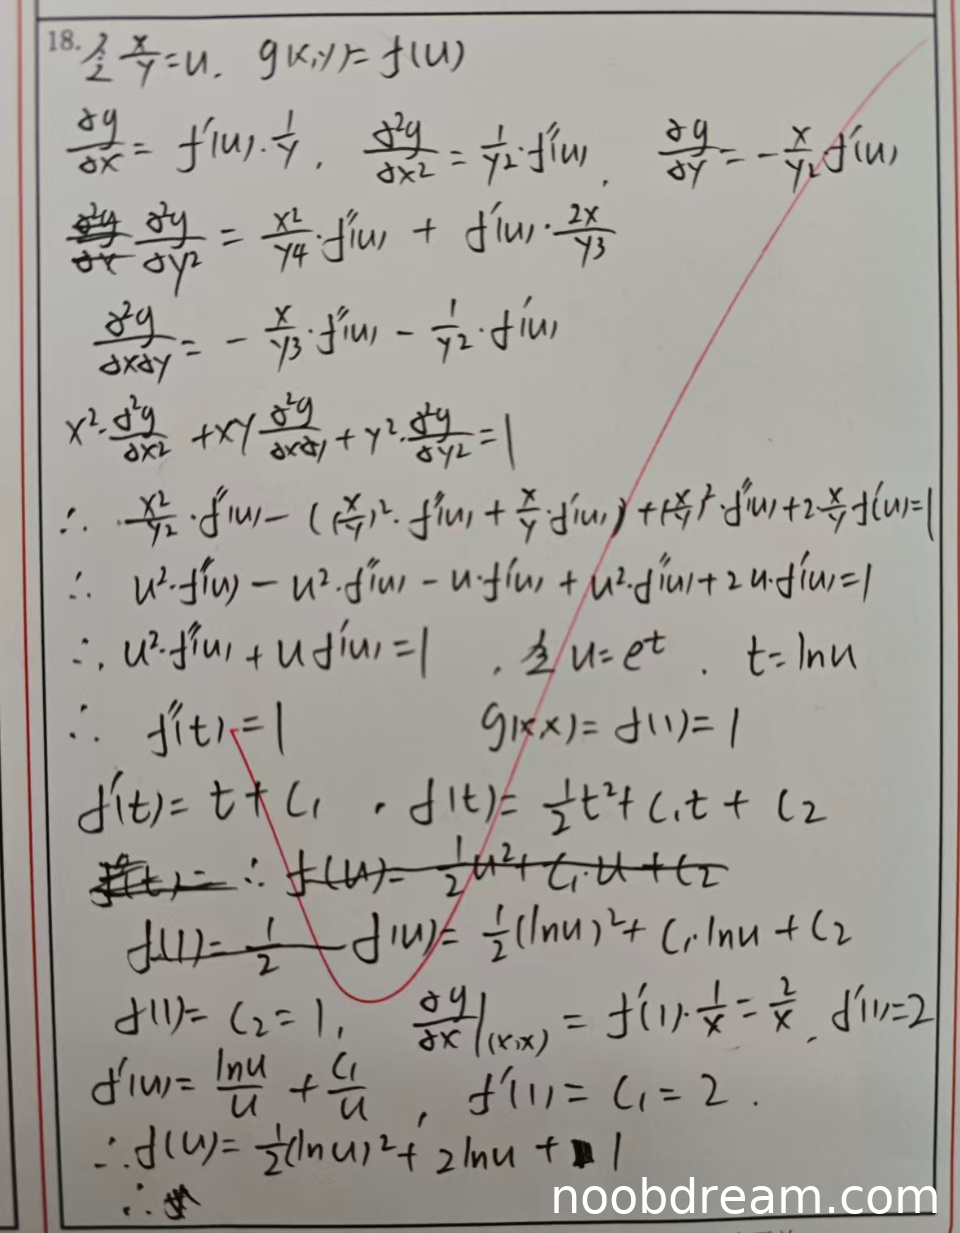 18. 令 x/y = u. g(x,y) = f(u)
∂g/∂x = f'(u)·1/y , ∂²g/∂x² = 1/y²·f''(u) , ∂g/∂y = -x/y² f'(u)
∂²g/∂y² = x²/y⁴·f''(u) + f'(u)·2x/y³
∂²g/∂x∂y = -x/y³·f''(u) - 1/y²·f'(u)
x²·∂²g/∂x² + xy ∂²g/∂x∂y + y²·∂²g/∂y² = 1
∴ x²/y²·f''(u) - ((x/y)²·f''(u) + x/y·f'(u)) + (x/y)²·f''(u) + 2·x/y f'(u) = 1
∴ u²·f''(u) - u²·f''(u) - u·f'(u) + u²·f''(u) + 2u·f'(u) = 1
∴ u²·f''(u) + u f'(u) = 1 , 令 u = eᵗ . t = ln u
∴ f''(t) = 1 g(x,x) = f(1) = 1
f'(t) = t + C₁ , f(t) = ½t² + C₁t + C₂
∴ f(u) = ½u² + C₁·u + C₂
f(1) = 1/2 f(u) = ½(ln u)² + C₁·ln u + C₂
f(1) = C₂ = 1 , ∂g/∂x|(x,x) = f'(1)·1/x = 2/x , f'(1) = 2
f'(u) = ln u/u + C₁/u , f'(1) = C₁ = 2 .
∴ f(u) = ½(ln u)² + 2 ln u + 1
∴
noobdream.com